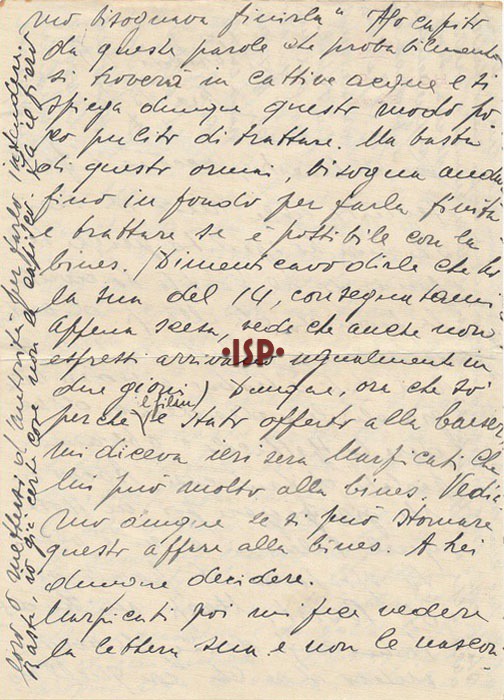 mo bisognava finirla" Ho capito
da queste parole che probabilmente
si troverà in cattive acque e si
spiega dunque questo modo po-
co pulito di trattare. Ma basta
di questo ormai, bisogna andar
fino in fondo per farla finita
e trattare se è possibile con la
bines. (Dimenticavo dirle che ho
la sua del 14, consegnatami
appena scesa, vede che anche non
espressi arrivano ugualmente in
due giorni) Dunque, ora che so'
perchè il film è stato offerto alla
mi diceva ieri sera Marpicati che
lui può molto alla bines. Vedia-
mo dunque se si può stornare
questo affare alla bines. A lei
dunque decidere.
Marpicati poi mi fece vedere
la lettera sua e non le nascon-
loro o mettersi d'autorità per farlo
Basta, io già certe cose non le capisco.
·ISP·